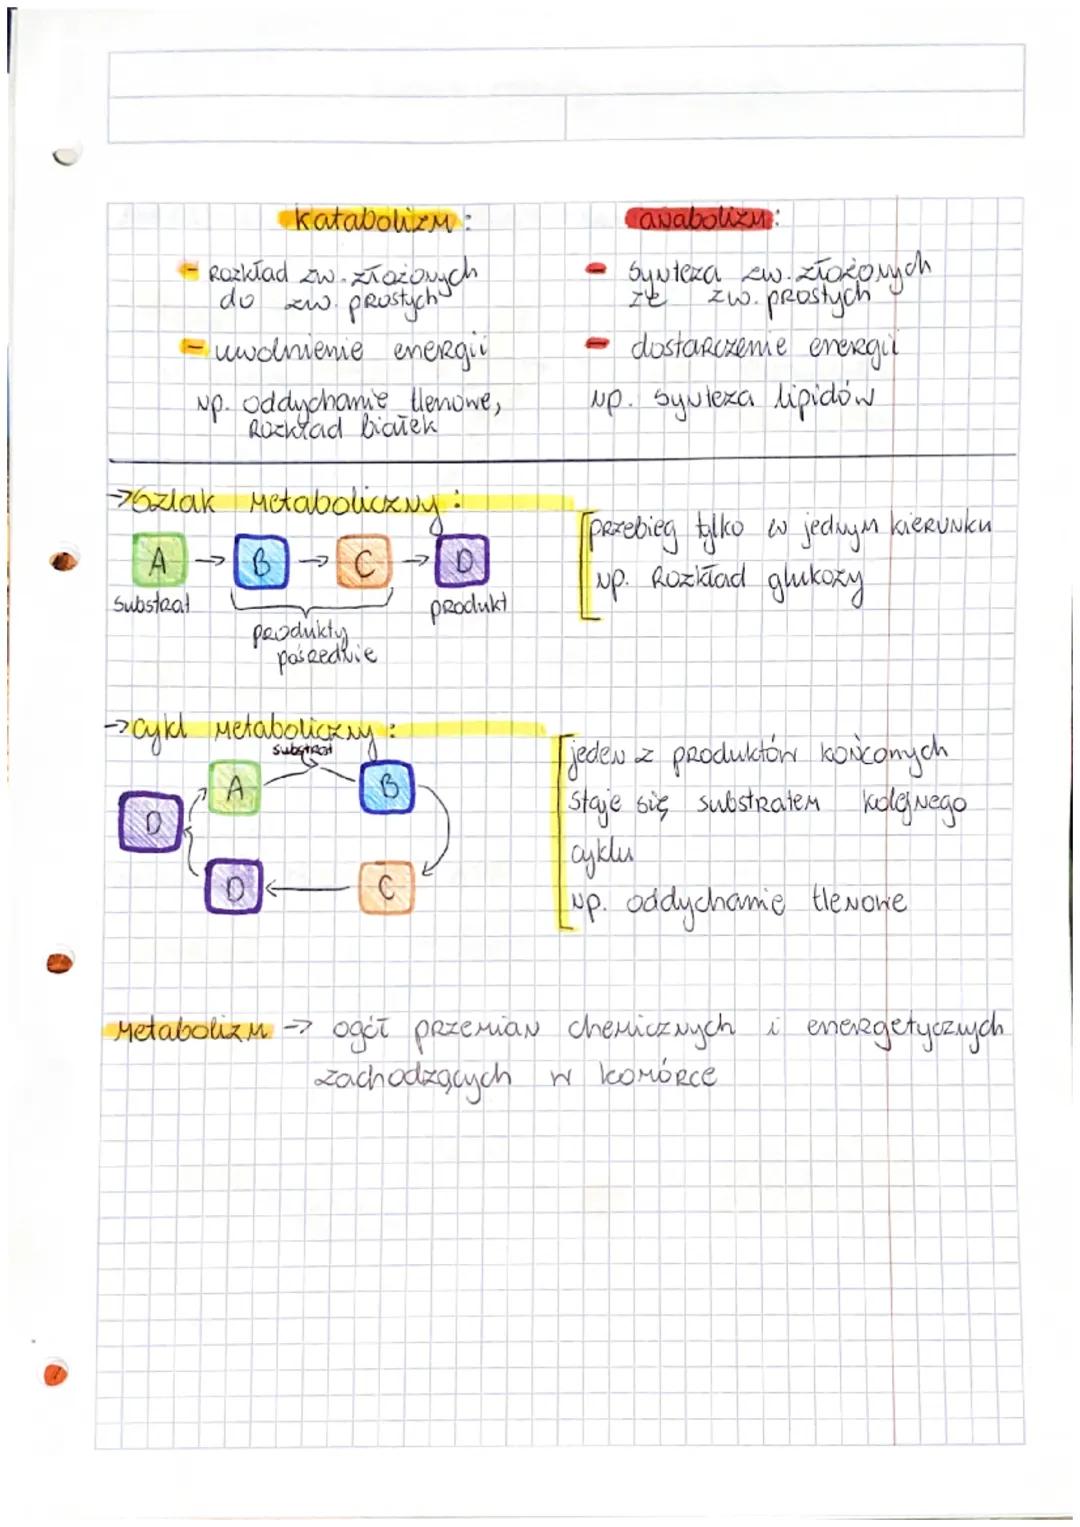 katabolizm:
- Rozkład zw. złożonych
do zw. prostych
- uwolnienie energii
np. oddychanie tlenowe,
Rozkład białek
anabolizm:
- synteza zw. złożonych
ze zw. prostych
- dostarczenie energii
np. synteza lipidów
→ Szlak metaboliczny:
A → B → C → D
substrat
produkt
produkty
pośrednie
przebieg tylko w jednym kierunku
np. Rozkład glukozy
→ cykl metaboliczny:
substrat
A B
D
D C
jeden z produktów końconych
staje się substratem kolejnego
cyklu
np. oddychanie tlenowe
Metabolizm → ogół przemian chemicznych i energetycznych
zachodzących w komórce